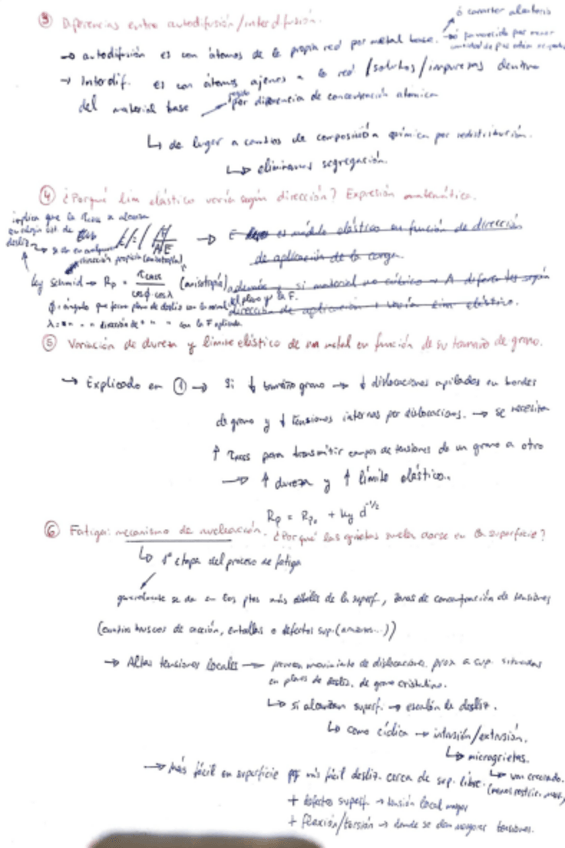 ③ Diferencias entre autodifusión/interdifusión.
ó caracter aleatorio
→ autodifusión es con átomos de la propia red por metal base. → favorecida por mayor
cantidad de
→ Interdif. es con átomos ajenos a la red /solutos/impurezas dentro
del material base por diferencia de concentración atomica
↳ da lugar a cambios de composición química por redistribución.
↳ eliminamos segregación.
④ ¿Porqué lim elástico varía según dirección? Expresión matemática.
implica que la
→ E es módulo elástico en función de dirección
de aplicación de la carga.
ley Schmid → Rp = τcrss / cosφ cosλ (anisotropía) además y si material no cúbico → A diferentes según
φ: ángulo que forma plano de desliz con la normal del plano y la F.
dirección de aplicación → varía lim elástico.
λ = " " " dirección de " " con la F aplicada
⑤ Variación de dureza y límite elástico de un metal en función de su tamaño de grano.
→ Explicado en ① → Si ↓ tamaño grano → ↓ dislocaciones apiladas en bordes
de grano y ↓ tensiones internas por dislocacions. → se necesita
↑ τcrss para transmitir campos de tensiones de un grano a otro
→ ↑ dureza y ↑ límite elástico..
Rp = Rp₀ + ky d^-1/2
⑥ Fatiga: mecanismo de nucleación. ¿Por qué las grietas suelen darse en la superficie?
↳ 1ª etapa del proceso de fatiga
generalmente se da en los ptos más débiles de la superf., zonas de concentración de tensiones
(cambios bruscos de sección, entallas o defectos sup. (arañazos...))
→ Altas tensiones locales → provoca movimiento de dislocaciones. prox a sup. situadas
en planos de desliz. de grano cristalino.
↳ si alcanzan superf. → escalón de desliz.
↳ como cíclica → intrusión/extrusión.
↳ microgrietas.
→ más fácil en superficie pq más fácil desliz. cerca de sup. libre. ↳ van creciendo.
(menos restric. mov.)
+ defectos superf. → tensión local mayor
+ flexión/torsión → donde se dan mayores tensiones.